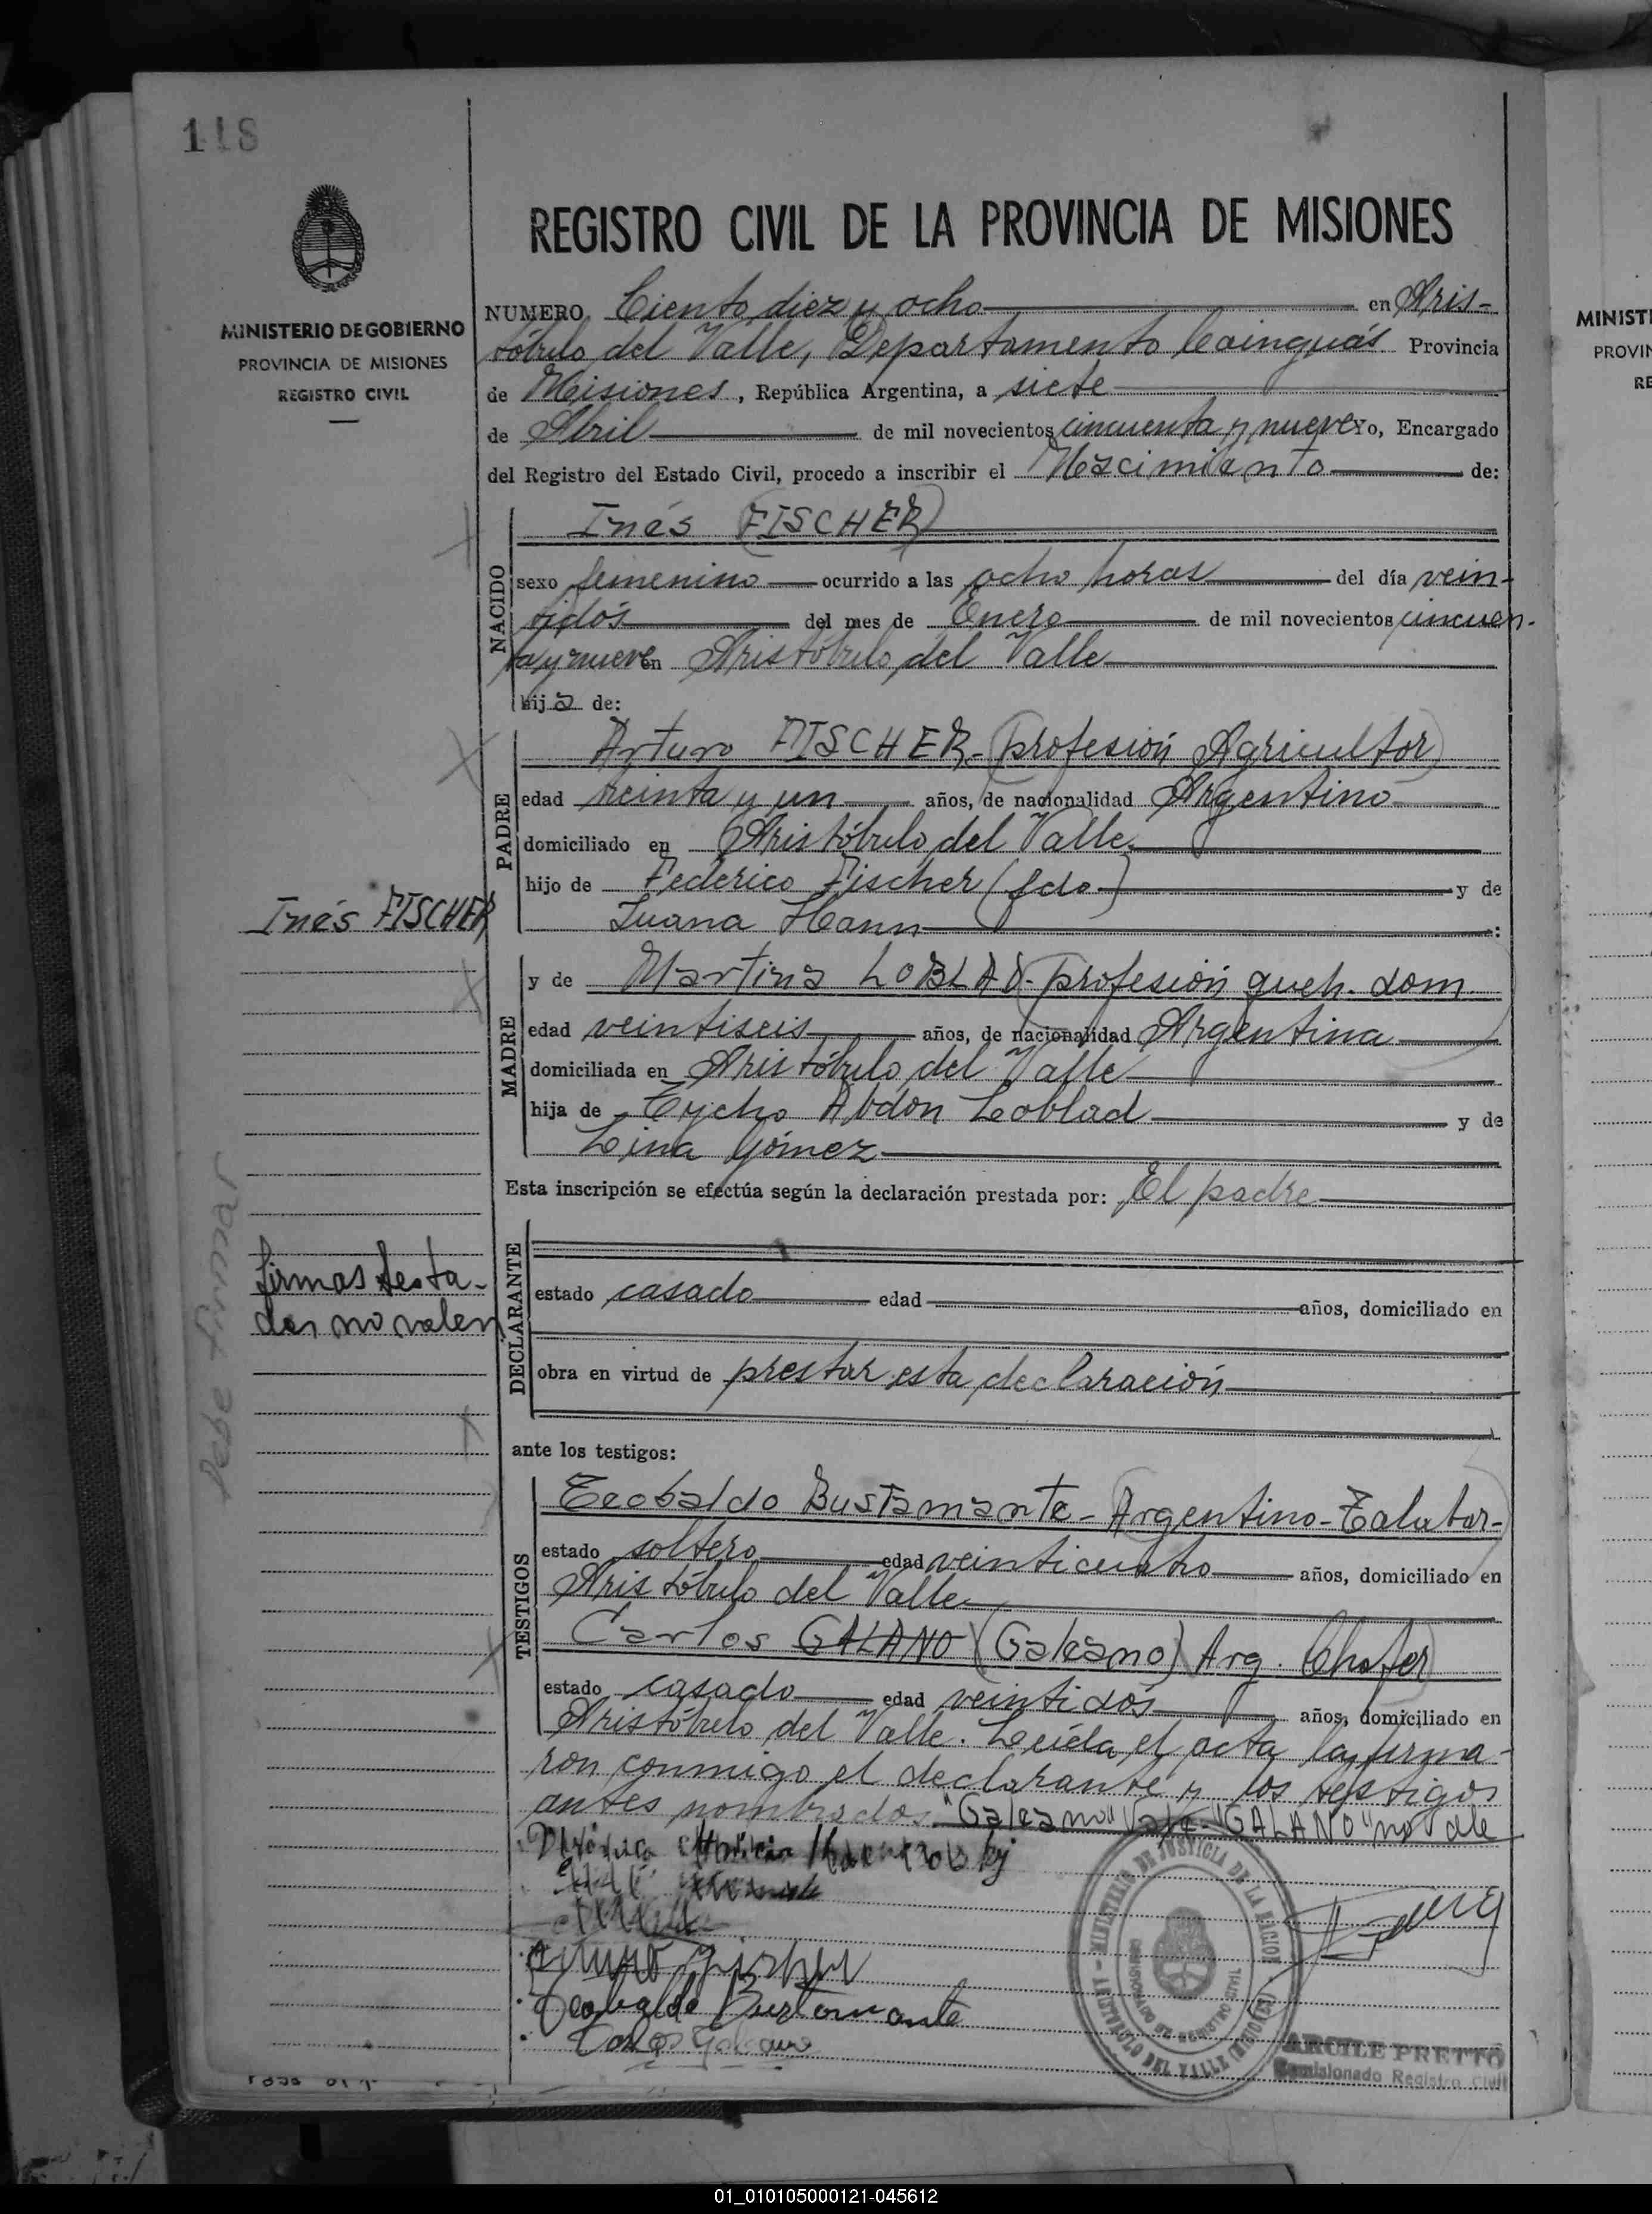 118
REGISTRO CIVIL DE LA PROVINCIA DE MISIONES
MINISTERIO DE GOBIERNO
PROVINCIA DE MISIONES
REGISTRO CIVIL
NUMERO Ciento diez y ocho en Aris-
tóbulo del Valle, Departamento Cainguás Provincia
de Misiones, República Argentina, a siete
de Abril de mil novecientos cincuenta y nueve Yo, Encargado
del Registro del Estado Civil, procedo a inscribir el Nacimiento de:
NACIDO
Inés (FISCHER)
sexo femenino ocurrido a las ocho horas del día vein-
tidós del mes de Enero de mil novecientos cincuen-
ta y nueve en Aristóbulo del Valle
hija de:
PADRE
Arturo FISCHER-(profesión Agricultor)
edad treinta y un años, de nacionalidad Argentino
domiciliado en Aristóbulo del Valle.
hijo de Federico Fischer (fdo) y de
Juana Hann:
Inés FISCHER
MADRE
y de Martina LOBLAD-(profesión queh. dom.
edad veintiseis años, de nacionalidad Argentina
domiciliada en Aristóbulo del Valle
hija de Tycho Abdón Loblad y de
Lina Gómez
Esta inscripción se efectúa según la declaración prestada por: El padre
Debe firmar
firmas testa-
das no valen
DECLARANTE
estado casado edad años, domiciliado en
obra en virtud de prestar esta declaración
ante los testigos:
TESTIGOS
Teobaldo Bustamante-(Argentino-Talabar-)
estado soltero edad veinticuatro años, domiciliado en
Aristóbulo del Valle
Carlos GALANO (Galeano) Arg. Chofer)
estado casado edad veintidós años, domiciliado en
Aristóbulo del Valle. Leída el acta la firma-
ron conmigo el declarante y los testigos
antes nombrados. "Galeano" Vale-"GALANO" no vale
Arturo Fischer
Teobaldo Bustamante
Carlos Galeano
MINISTERIO DE JUSTICIA DE LA NACION
ARISTOBULO DEL VALLE (MISIONES)
REGISTRO CIVIL
ARCILE PRETTO
Comisionado Registro Civil
MINIST
PROVIN
RE
01_010105000121-045612